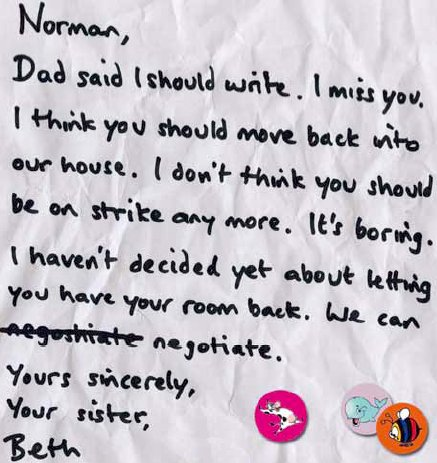 Norman,
Dad said I should write. I miss you.
I think you should move back into
our house. I don't think you should
be on strike any more. It's boring.
I haven't decided yet about letting
you have your room back. We can
negoshiate negotiate.
Yours sincerely,
Your sister,
Beth